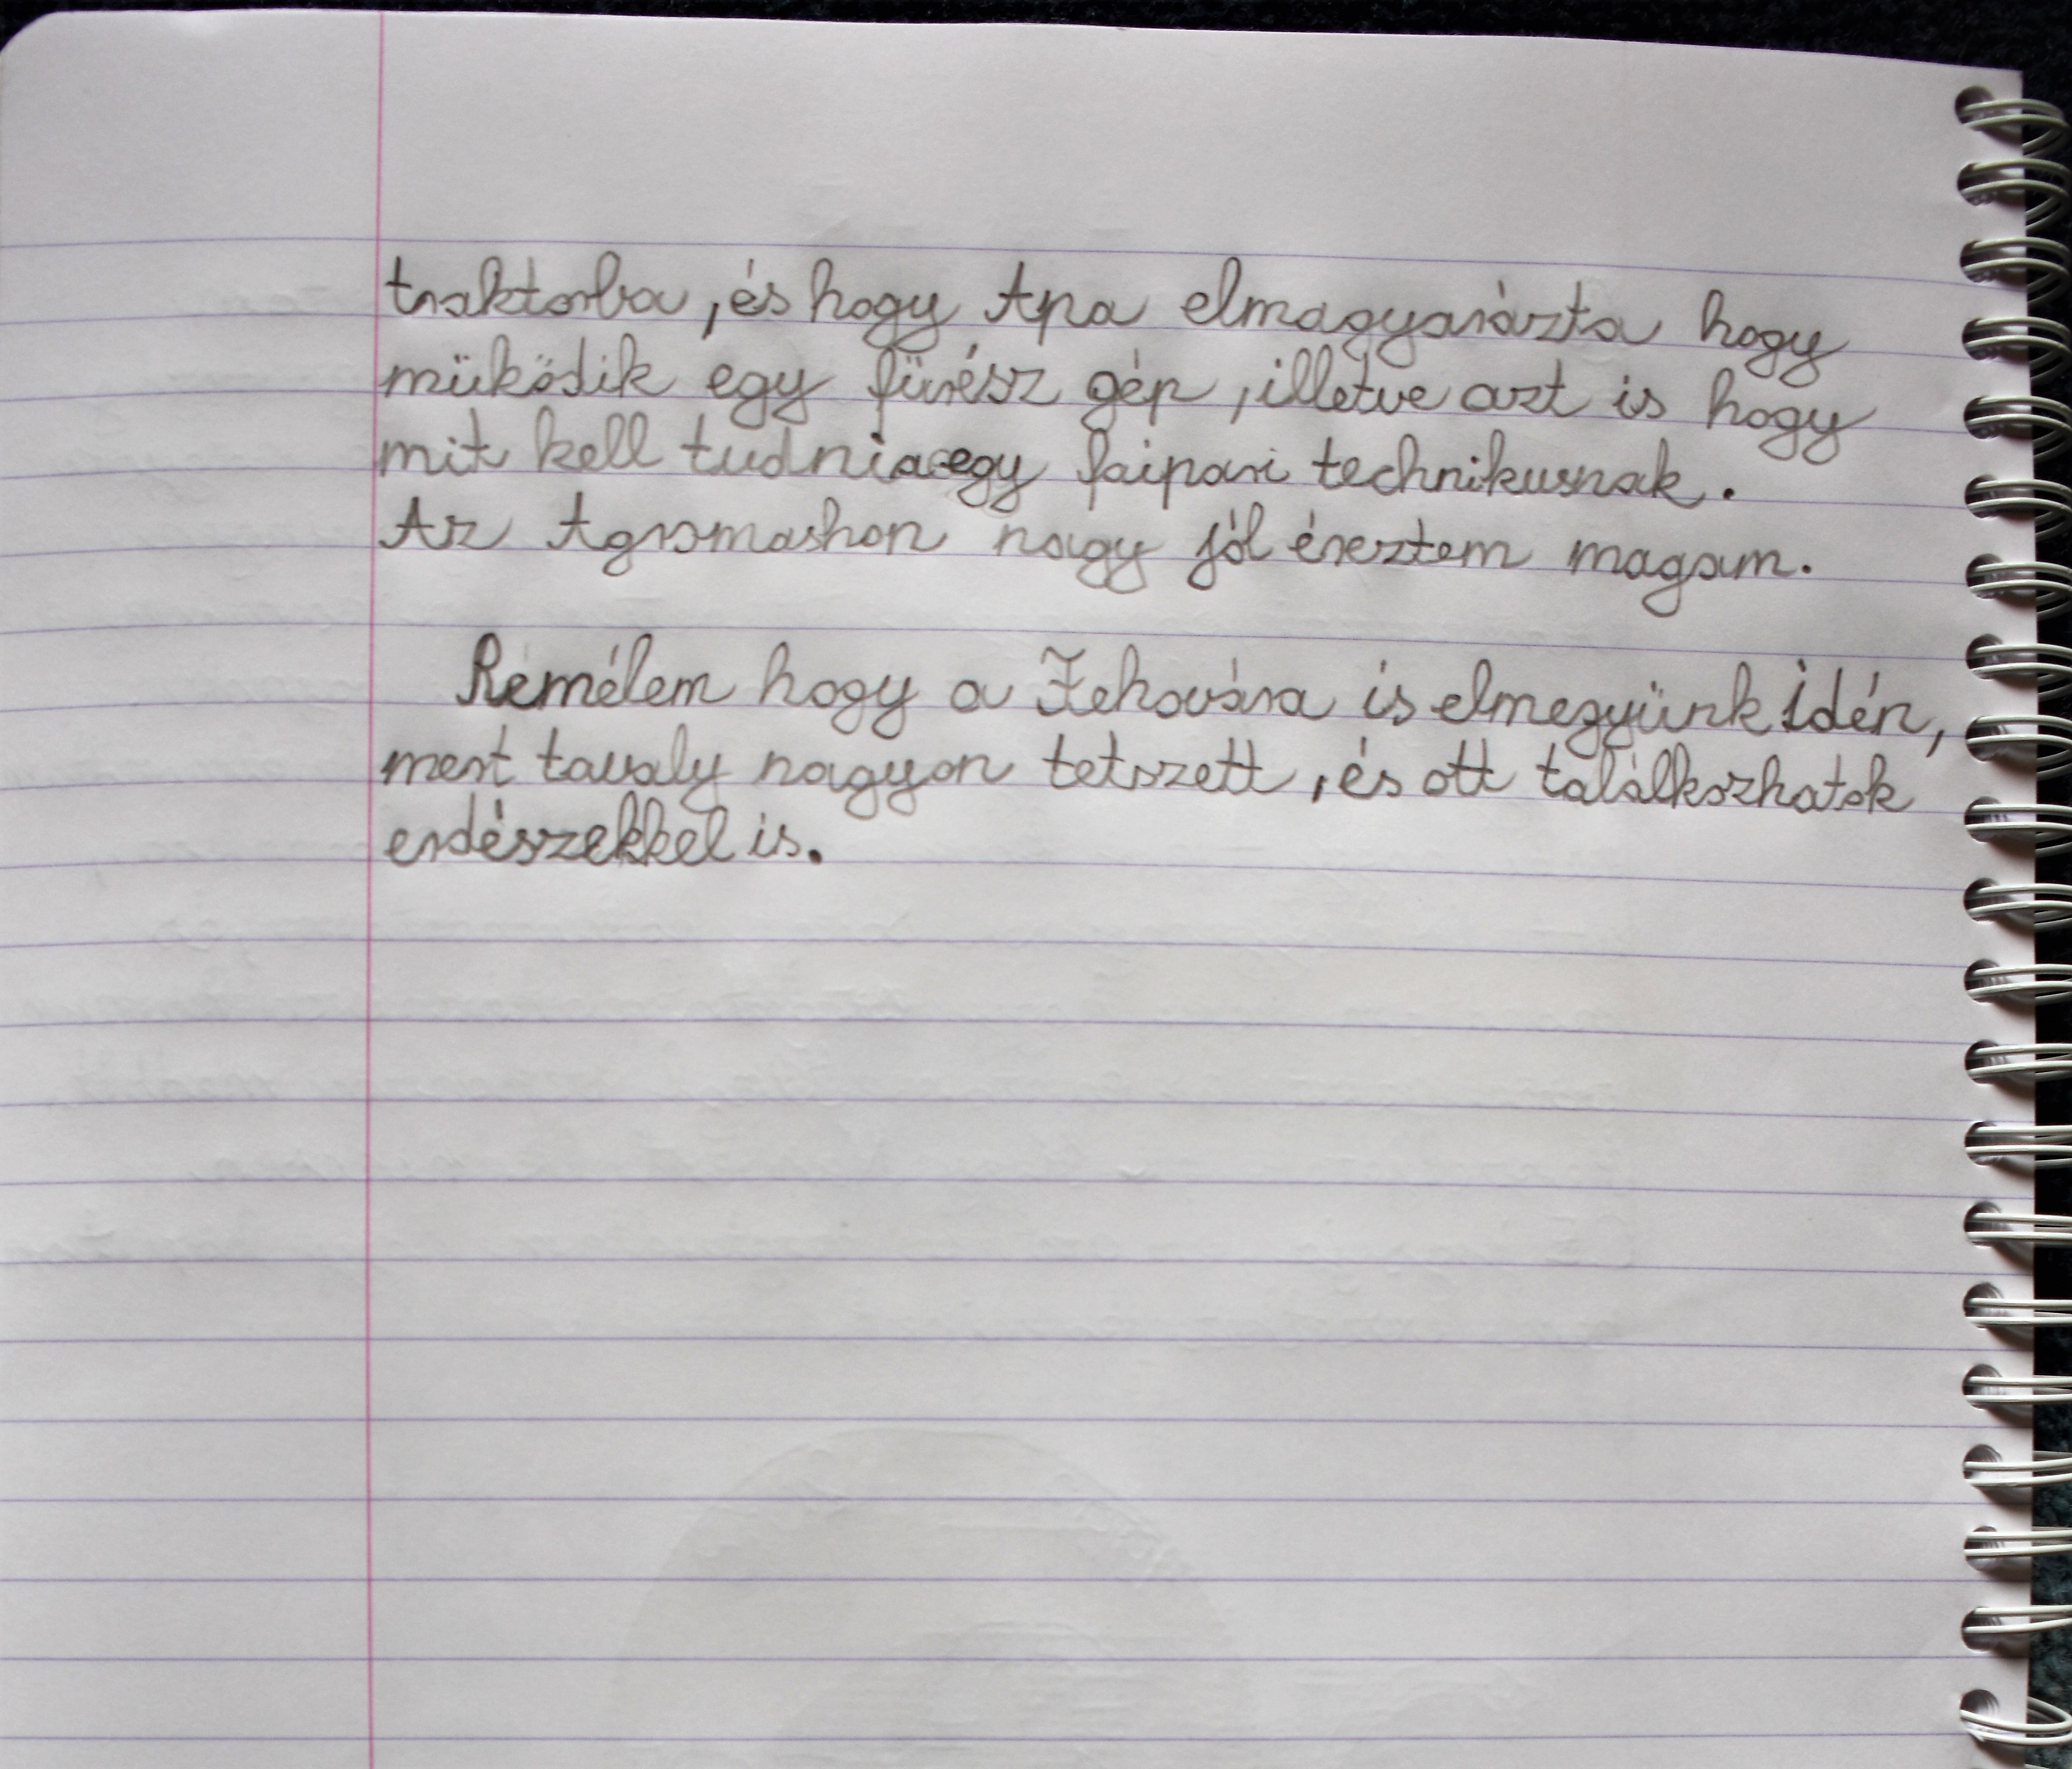 traktorba, és hogy Apa elmagyarázta hogy
müködik egy fürész gép, illetve azt is hogy
mit kell tudnia egy faipari technikusnak.
Az Agromashon nagy jól éreztem magam.
Remélem hogy a Fehovára is elmegyünk idén,
mert tavaly nagyon tetszett, és ott találkozhatok
erdészekkel is.